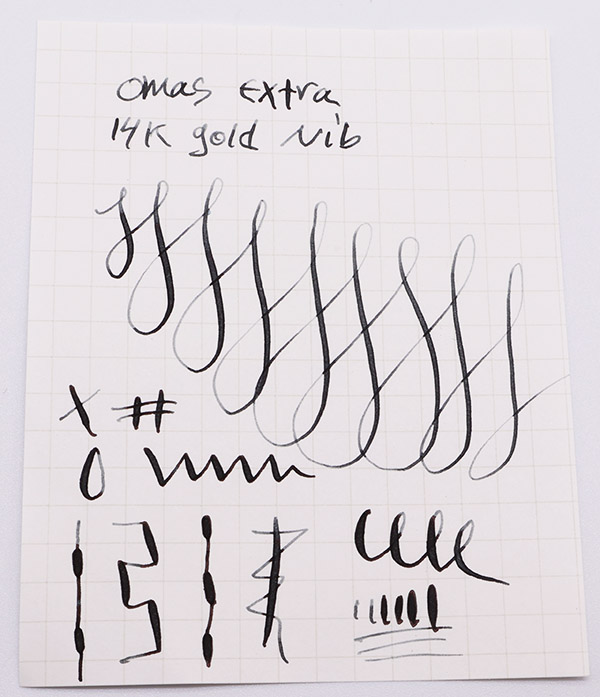 Omas Extra
14K gold Nib
X #